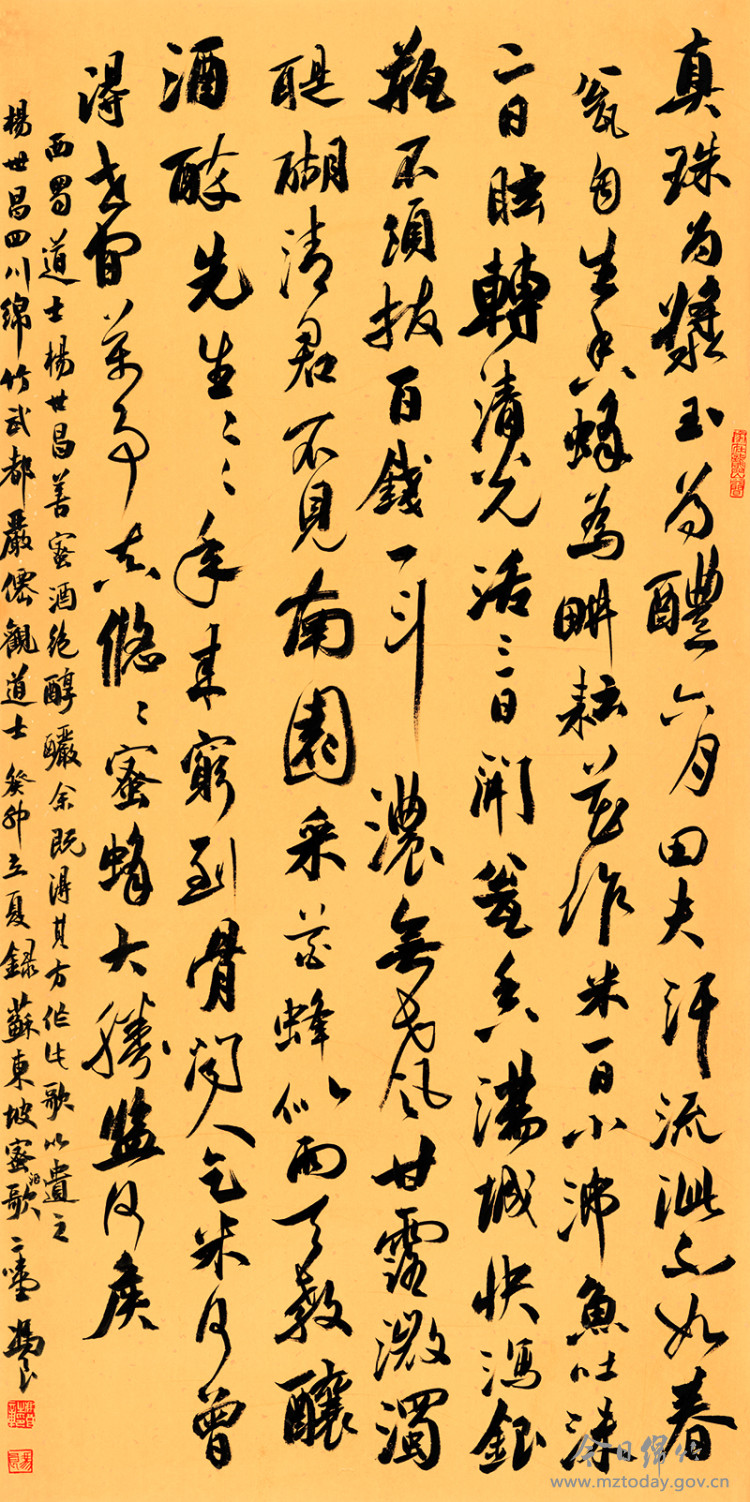 真珠為漿玉為醴六月田夫汗流泚不如春
瓮自生香蜂為耕耘花作米一日小沸魚吐沫
二日眩轉清光活三日開瓮香滿城快瀉銀
瓶不須拔百錢一斗濃無聲甘露微濁
醍醐清君不見南園采花蜂似雨天教釀
酒醉先生〻〻年来窮到骨問人乞米何曾
得世间萬事真悠〻蜜蜂大勝監河侯
西蜀道士楊世昌善蜜酒絕醇釅余既得其方作此歌以遺之
楊世昌四川綿竹武都嚴僊觀道士 癸卯立夏錄蘇東坡蜜酒歌
今日绵竹
www.mztoday.gov.cn